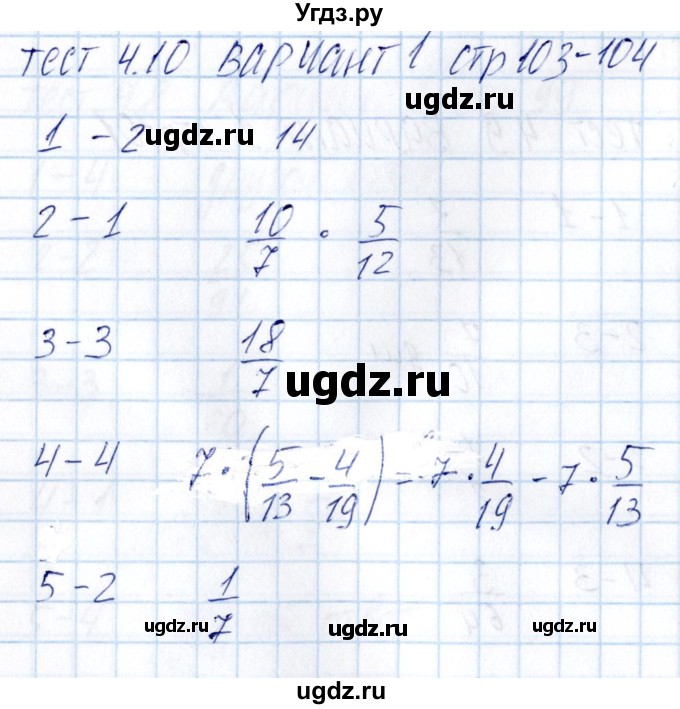 Угдз.ру
тест 4.10 вариант 1 стр 103-104
ugdz.ru
1 - 2 ugdz.ru 14
2 - 1 10/7 · 5/12
3 - 3 18/7
ugdz.ru
4 - 4 7 · (5/13 - 4/19) = 7 · 4/19 - 7 · 5/13
5 - 2 1/7
ugdz.ru ugdz.ru ugdz.ru
ugdz.ru